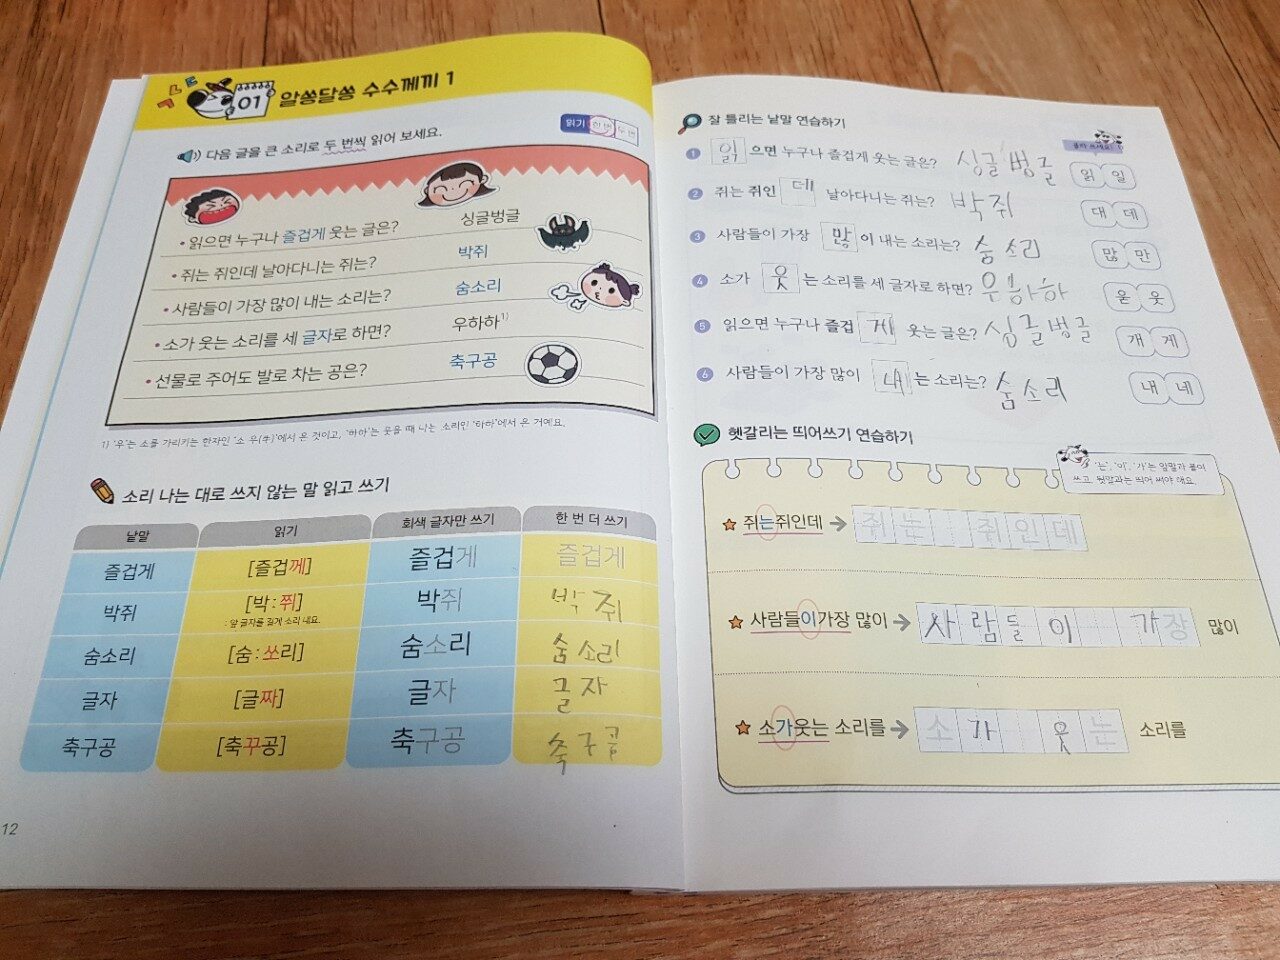 ㄱ ㄴ ㄷ
01 알쏭달쏭 수수께끼 1
다음 글을 큰 소리로 두 번씩 읽어 보세요.
읽기 한 번 두 번
• 읽으면 누구나 즐겁게 웃는 글은? 싱글벙글
• 쥐는 쥐인데 날아다니는 쥐는? 박쥐
• 사람들이 가장 많이 내는 소리는? 숨소리
• 소가 웃는 소리를 세 글자로 하면? 우하하1)
• 선물로 주어도 발로 차는 공은? 축구공
1) '우'는 소를 가리키는 한자인 '소 우(牛)'에서 온 것이고, '하하'는 웃을 때 나는 소리인 '하하'에서 온 거예요.
소리 나는 대로 쓰지 않는 말 읽고 쓰기
낱말 읽기 회색 글자만 쓰기 한 번 더 쓰기
즐겁게 [즐겁께] 즐겁게 즐겁게
박쥐 [박:쮜] 박쥐 박쥐
: 앞 글자를 길게 소리 내요.
숨소리 [숨:쏘리] 숨소리 숨소리
글자 [글짜] 글자 글자
축구공 [축꾸공] 축구공 축구공
12
잘 틀리는 낱말 연습하기
골라 쓰세요!
1 읽으면 누구나 즐겁게 웃는 글은? 싱글벙글 읽 일
2 쥐는 쥐인데 날아다니는 쥐는? 박쥐 대 데
3 사람들이 가장 많이 내는 소리는? 숨소리 많 만
4 소가 웃는 소리를 세 글자로 하면? 우하하 욷 웃
5 읽으면 누구나 즐겁게 웃는 글은? 싱글벙글 개 게
6 사람들이 가장 많이 내는 소리는? 숨소리 내 네
헷갈리는 띄어쓰기 연습하기
'는', '이', '가'는 앞말과 붙여
쓰고, 뒷말과는 띄어 써야 해요.
쥐는쥐인데 → 쥐는 쥐인데
사람들이가장 많이 → 사람들이 가장 많이
소가웃는 소리를 → 소가 웃는 소리를